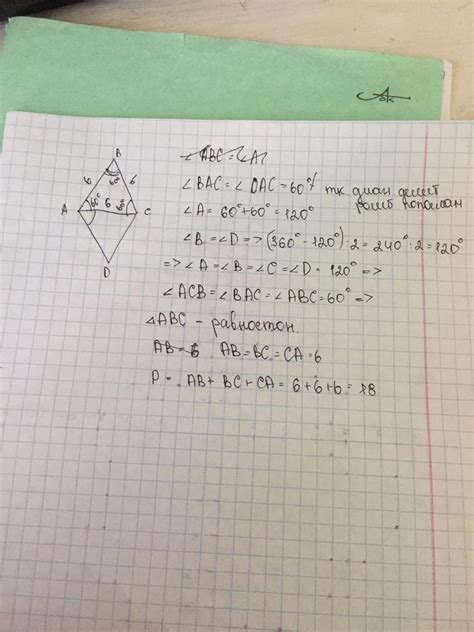 B
6 60° 6
A 60° 6 60° C
D
∠ABC = ∠A
∠BAC = ∠DAC = 60° тк диан делит
ромб попалам
∠A = 60° + 60° = 120°
∠B = ∠D => (360° - 120°) : 2 = 240° : 2 = 120°
=> ∠A = ∠B = ∠C = ∠D = 120° =>
∠ACB = ∠BAC = ∠ABC = 60° =>
△ABC - равностон.
AB = 6 AB = BC = CA = 6
P = AB + BC + CA = 6 + 6 + 6 = 18